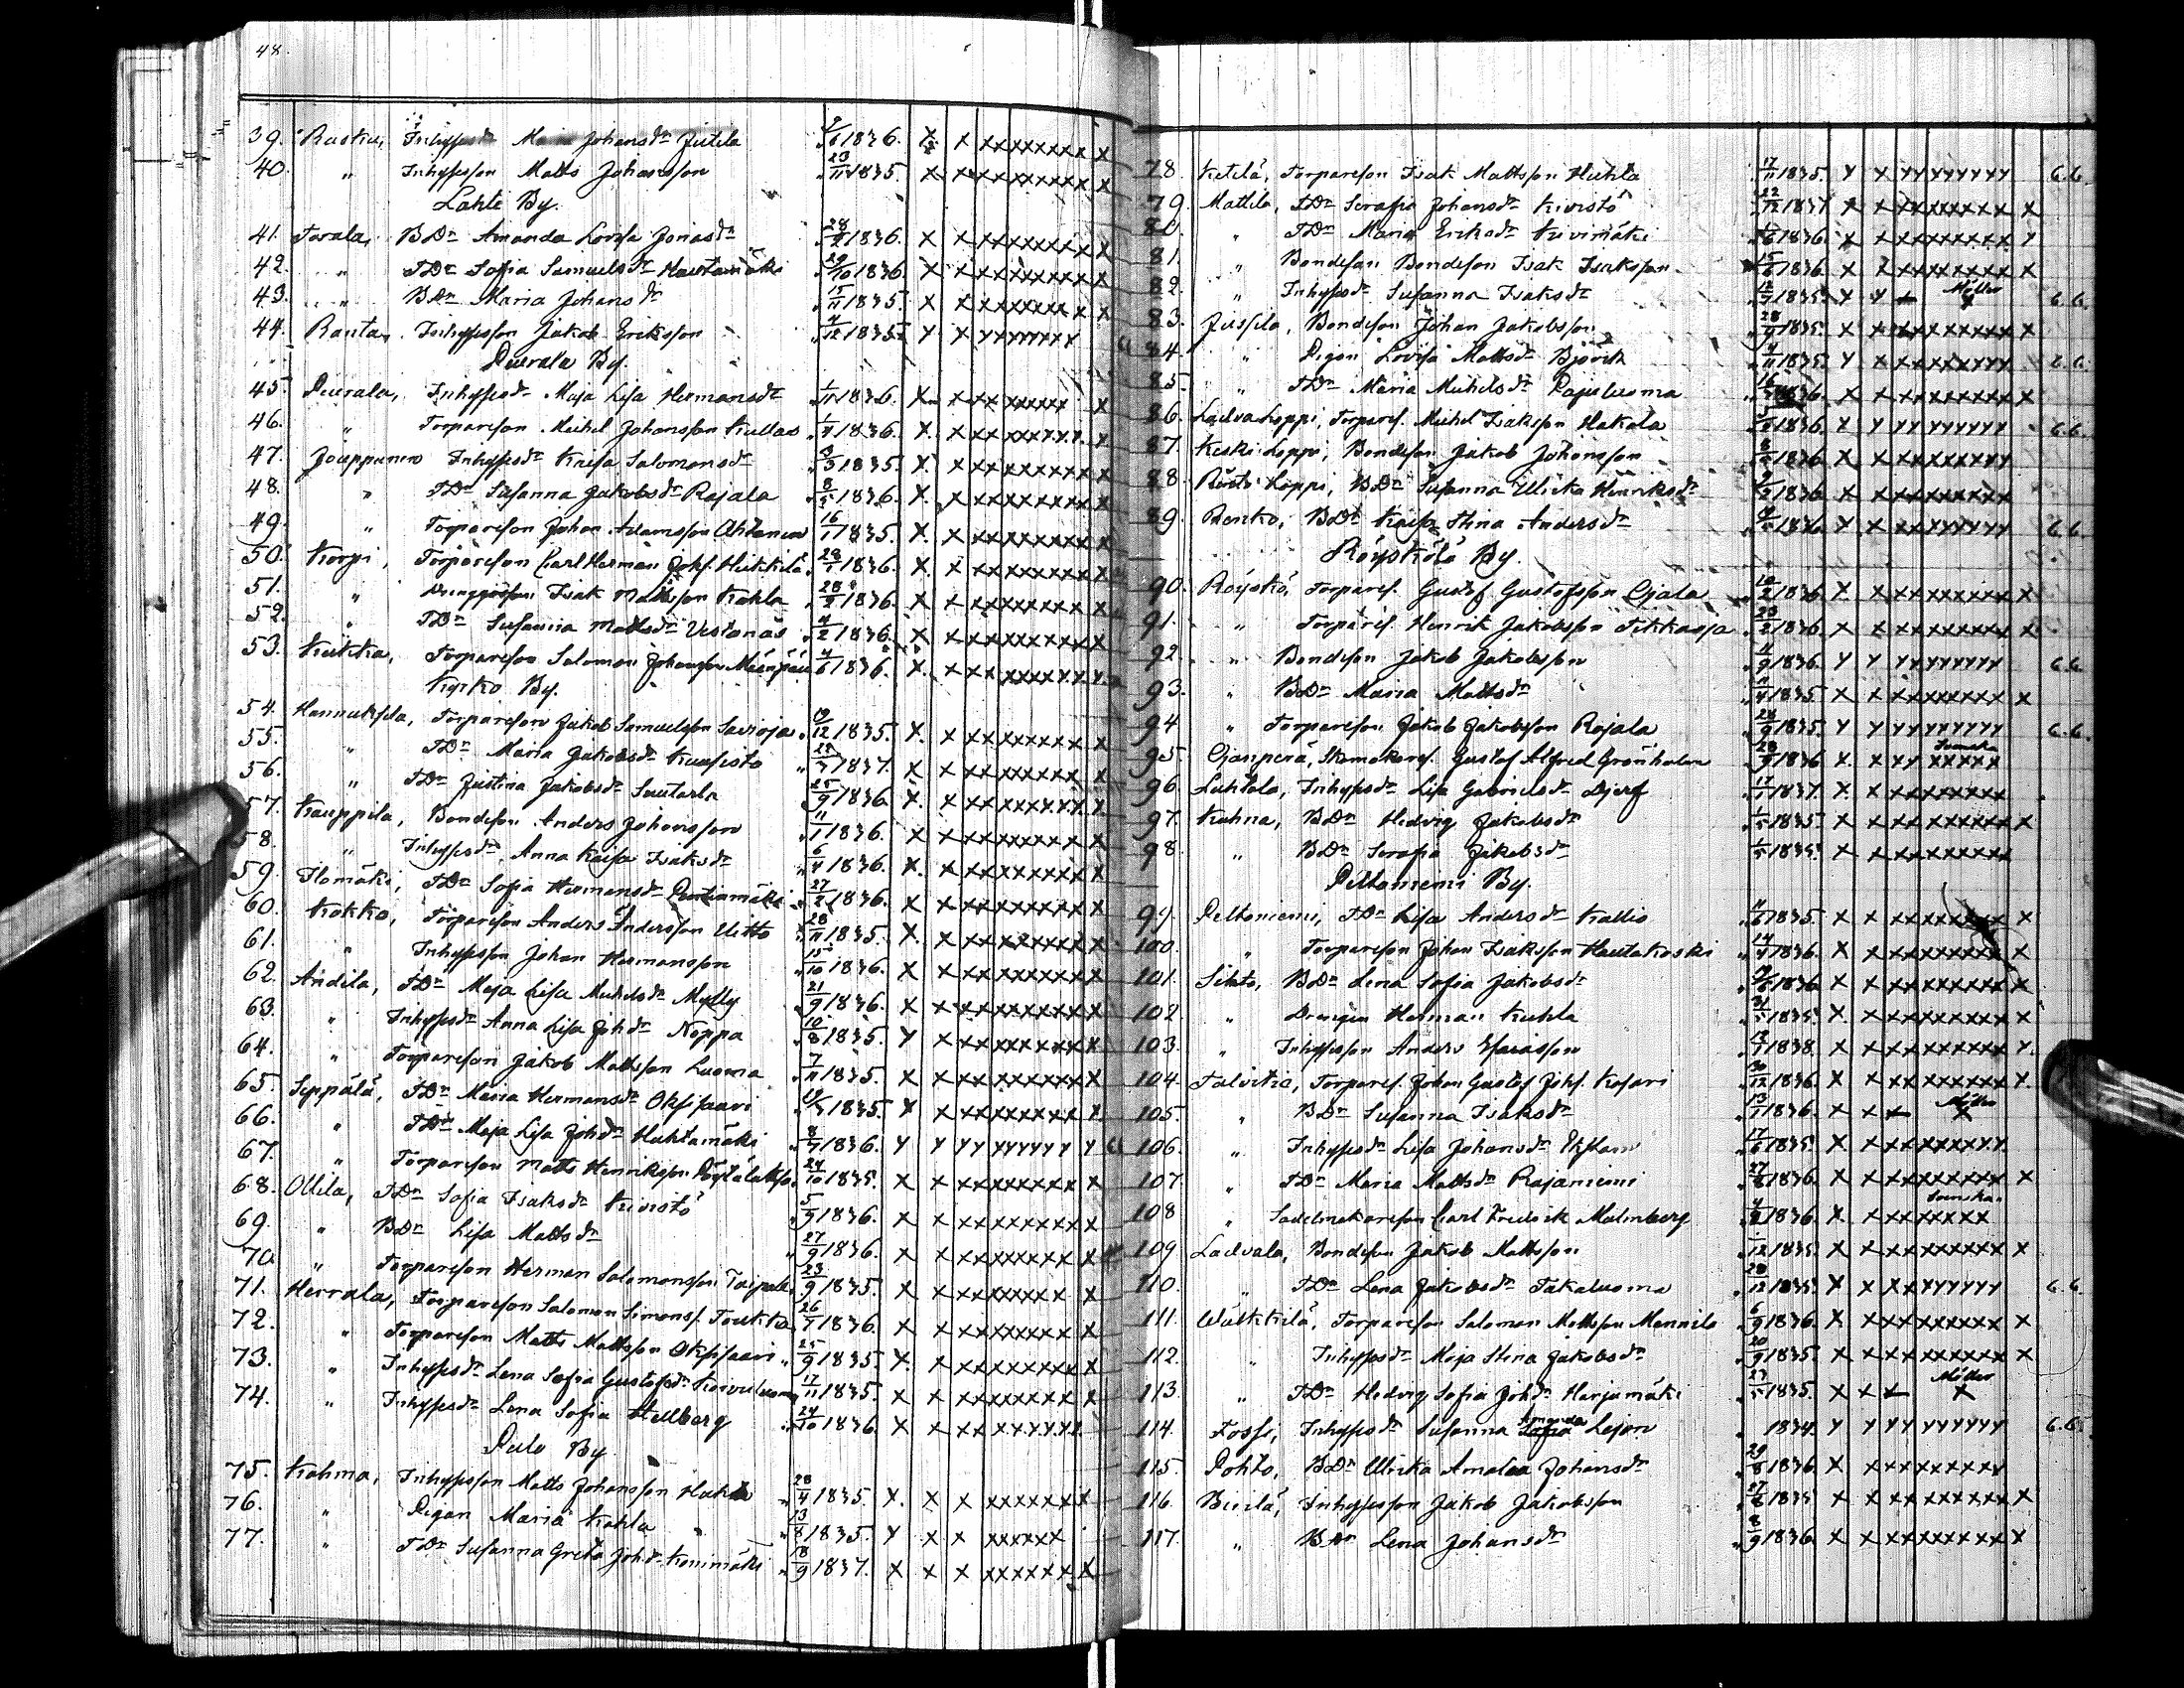 48.
39. Rasku, Inhysesdr Maria Johansdr Jutila 1836. X X XXXXXXXX X
40. " Inhysesson Matts Johansson 23/11 1835. X X XXXXXXXX X
Lahti By.
41. Torala, BDr Amanda Lovisa Jonasdr 28/2 1836. X X XXXXXXXX X
42. " TDr Sofia Samuelsdr Hautamäki 29/10 1836. X X XXXXXXXX X
43. " BDr Maria Johansdr 15/11 1835. X X XXXXXXXX X
44. Ranta, Inhysesson Jakob Eriksson 4/12 1835. Y X YYYYYYYY
Peurala By.
45. Peurala, Inhysesdr Maja Lisa Hermansdr 1/11 1836. X X XX XXXXXX X
46. " Torpareson Michel Johansson Kullas 1836. X X XX XXXXXX X
47. Jouppunen Inhysesdr Kaisa Salomonsdr 3/3 1835. X X XXXXXXXX X
48. " TDr Susanna Jakobsdr Rajala 8/5 1836. X X XXXXXXXX X
49. " Torpareson Johan Adamsson Ahtonen 16/1 1835. X X XXXXXXXX X
50. Korpi, Torpareson Carl Herman Johs. Heikkilä 28/1 1836. X X XXXXXXXX
51. " Isak Mattsson Kahla 28/2 1836. X X XXXXXXXX
52. " TDr Susanna Mattsdr Vestanäs 4/2 1836. X X XXXXXXXX
53. Kukka, Torpareson Salomon Johansson Mäenpää 4/6 1836. X X XX XXXXXX
Kyrko By.
54. Hannuksela, Torpareson Jakob Samuelsson Savioja 19/12 1835. X X XXXXXXXX X
55. " TDr Maria Jakobsdr Kuusisto 1837. X X XXXXXXXX X
56. " TDr Justina Jakobsdr Sautarla 25/9 1836. X X XXXXXXXX X
57. Kauppila, Bondeson Anders Johansson 11/1 1836. X X XXXXXXXX X
58. " Inhysesdr Anna Kaisa Isaksdr 6/4 1836. X X XXXXXXXX X
59. Ilomäki, TDr Sofia Hermansdr Pentinmäki 27/2 1836. X X XXXXXXXX X
60. Kokko, Torpareson Anders Andersson Uitto 28/11 1835. X X XXXXXXXX X
61. " Inhysesson Johan Hermansson 15/10 1836. X X XXXXXXXX X
62. Andila, TDr Maja Lisa Michelsdr Mylly 21/9 1836. X X XXXXXXXX X
63. " Inhysesdr Anna Lisa Johdr Noppa 10/8 1835. Y X XXXXXXXX X
64. " Torpareson Jakob Mattsson Luoma 7/11 1835. X X XXXXXXXX X
65. Seppälä, TDr Maria Hermansdr Oksisaari 1835. X X XXXXXXXX X
66. " TDr Maja Lisa Johdr Huhtamäki 8/7 1836. Y Y YYYYYYYY Y
67. " Torpareson Matts Henriksson 24/10 1835. X X XXXXXXXX X
68. Ollila, TDr Sofia Isaksdr Kivistö 5/9 1836. X X XXXXXXXX X
69. " BDr Lisa Mattsdr 27/9 1836. X X XXXXXXXX X
70. " Torpareson Herman Salomonsson Taipale 23/9 1835. X X XXXXXXXX X
71. Herrala, Torpareson Salomon Simons. Toukka 26/7 1836. X X XXXXXXXX X
72. " Torpareson Matts Mattsson Oksisaari 25/9 1835. X X XXXXXXXX X
73. " Inhysesdr Lena Sofia Gustafsdr Koivuluoma 17/11 1835. X X XXXXXXXX X
74. " Inhysesdr Lena Sofia Hellberg 24/10 1836. X X XXXXXXXX
Palo By
75. Kahma, Inhysesson Matts Johansson Huhta 28/4 1835. X X X XXXXXXX
76. " Pigan Maria Kahla 13/8 1835. Y X X XXXXXX
77. " TDr Susanna Greta Johdr Konimäki 18/9 1837. X X X XXXXXXX X
78. Ketilä, Torpareson Isak Mattsson Huhla 17/11 1835. Y X YYYYYYYY 6.6.
79. Mattila, TDr Serafia Johansdr Kivistö 22/12 1837. X X XXXXXXXX X
80. " TDr Maria Eriksdr Kivimäki 1836. X X XXXXXXXX Y
81. " Bondeson Bondeson Isak Isaksson 15/6 1836. X X XXXXXXXX X
82. " Inhysesdr Susanna Isaksdr 12/7 1835. Y Y Möller X 6.6.
83. Jussila, Bondeson Johan Jakobsson 28/9 1835. X X XXXXXXXX X
84. " Pigan Lovisa Mattsdr Björk 4/11 1835. Y X XXXXXXXX 6.6.
85. " TDr Maria Michelsdr Pajuluoma 16/ 1836. X X XXXXXXXX X
86. Ladvaloppi, Torpares. Michel Isaksson Hakala 1836. Y Y YYYYYYYY 6.6.
87. Keski-Loppi, Bondeson Jakob Johansson 8/5 1836. X X XXXXXXXX
88. Loppi, BDr Susanna Ulrika Henriksdr 1836. X X XXXXXXXX
89. Renko, BDr Kaisa Stina Andersdr 1836. Y X XXYYYYYY 6.6.
Röyskölä By.
90. Röyskö, Torpares. Gustaf Gustafsson Ojala 10/2 1836. X X XXXXXXXX X
91. " Torpares. Henrik Jakobsson Tikkaoja 23/2 1836. X X XXXXXXXX X
92. " Bondeson Jakob Jakobsson 11/9 1836. Y Y YYYYYYYY 6.6.
93. " BDr Maria Mattsdr 11/4 1835. X X XXXXXXXX X
94. " Torpareson Jakob Jakobsson Rajala 24/9 1835. Y Y YYYYYYYY 6.6.
95. Ojanperä, Skomakares. Gustaf Alfred Grönholm 28/9 1836. X X YY XXXXX
96. Luhtala, Inhysesdr Lisa Gabrielsdr Djerf 17/1 1837. X X XXXXXXXX
97. Kuhna, BDr Hedvig Jakobsdr 1/5 1835. X X XXXXXXXX X
98. " BDr Serafia Jakobsdr 1/5 1835. X X XXXXXXXX
Peltoniemi By.
99. Peltoniemi, TDr Lisa Andersdr Kallio 11/6 1835. X X XXXXXXXX X
100. " Torpareson Johan Isaksson Hautakoski 14/4 1836. X X XXXXXXXX X
101. Sihto, BDr Lena Sofia Jakobsdr 1836. X X XXXXXXXX X
102. " Drengen Herman Kuhla 31/5 1835. X X XXXXXXXX X
103. " Inhysesson Anders Esaiasson 1838. X X XXXXXXXX Y.
104. Talvitie, Torpares. Johan Gustaf Johs. Kasari 30/12 1836. X X XXXXXXXX X.
105. " BDr Susanna Isaksdr 13/1 1836. X X Möller X
106. " Inhysesdr Lisa Johansdr Ekstam 17/6 1835. X X XXXXXXYY.
107. " TDr Maria Mattsdr Rajaniemi 27/8 1836. X X XXXXXXXX X
108. " Sadelmakareson Carl Fredrik Malmberg 4/2 1836. X X Svenska XXXXXXX
109. Ladvala, Bondeson Jakob Mattsson 12 1835. X X XXXXXXXX X
110. " TDr Lena Jakobsdr Takaluoma 28/12 1835. Y X XXYYYYYY 6.6.
111. Wälkkilä, Torpareson Salomon Mattsson Mannila 6/9 1836. X X XXXXXXXX X
112. " Inhysesdr Maja Stina Jakobsdr 20/9 1835. X X XXXXXXXX X
113. " TDr Hedvig Sofia Johdr Harjumäki 27/5 1835. X X X Möller X
114. Fossi, Inhysesdr Susanna Amanda Lejon 1834. Y Y YY YYYYYY 6.6.
115. Pohto, BDr Ulrika Amalia Johansdr 29/8 1836 X XXXXXXXX
116. Birilä, Inhysesson Jakob Jakobsson 27/8 1835 X X XXXXXXXX X
117. " BDr Lena Johansdr 8/9 1836. X X XXXXXXXX X